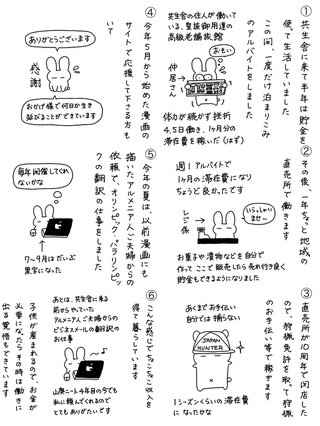 ①共生舎に来て半年は貯金を
使て生活していました
この間、一度だけ泊まりこみ
のアルバイトをしました
共生舎の住人が働いて
いる、皇族御用達の
高級老舗旅館
おもい
仲居さん
体力が続かず挫折
4.5日働き、1ヶ月分の
滞在費を稼いだ(はず)
②その後、一年ちょっと地域の
直売所で働きます
週1アルバイトで
1ヶ月の滞在費になり
ちょうど良かったです
レジ係
いらっしゃい
ませー
お菓子や漬物などを自分で
作ってここで販売したら売れ行き良く
貯金もできるようになりました
③直売所が10周年で閉店した
ので、狩猟免許を取って狩猟
のお手伝い等で稼ぎます
あくまでお手伝い
自分では捕らない
JAPAN
HUNTER
1シーズンくらいの滞在費
になったかな
④今年5月から始めた漫画の
サイトで応援して下さる方も
いて
ありがとうございます
感謝
おかげ様で何日か生き
延びることができています
⑤今年の夏は、以前漫画にも
描いたアルメニア人ご夫婦からの
依頼で、オリンピック・パラリンピッ
クの翻訳の仕事をしました
毎年開催してくれ
ないかな
7〜9月はだいぶ
黒字になった
あとは、共生舎に来る
前からやっていた
アルメニア人ご夫婦からの
ビジネスメールの翻訳の
お仕事
山奥ニート4年目の今でも
私に頼んでくれるので
とてもありがたいです
⑥こんな感じでちょこちょこ収入を
得て暮らしています
子供が産まれるので、お金が
必要になったらその時は働きに
出る覚悟もできています